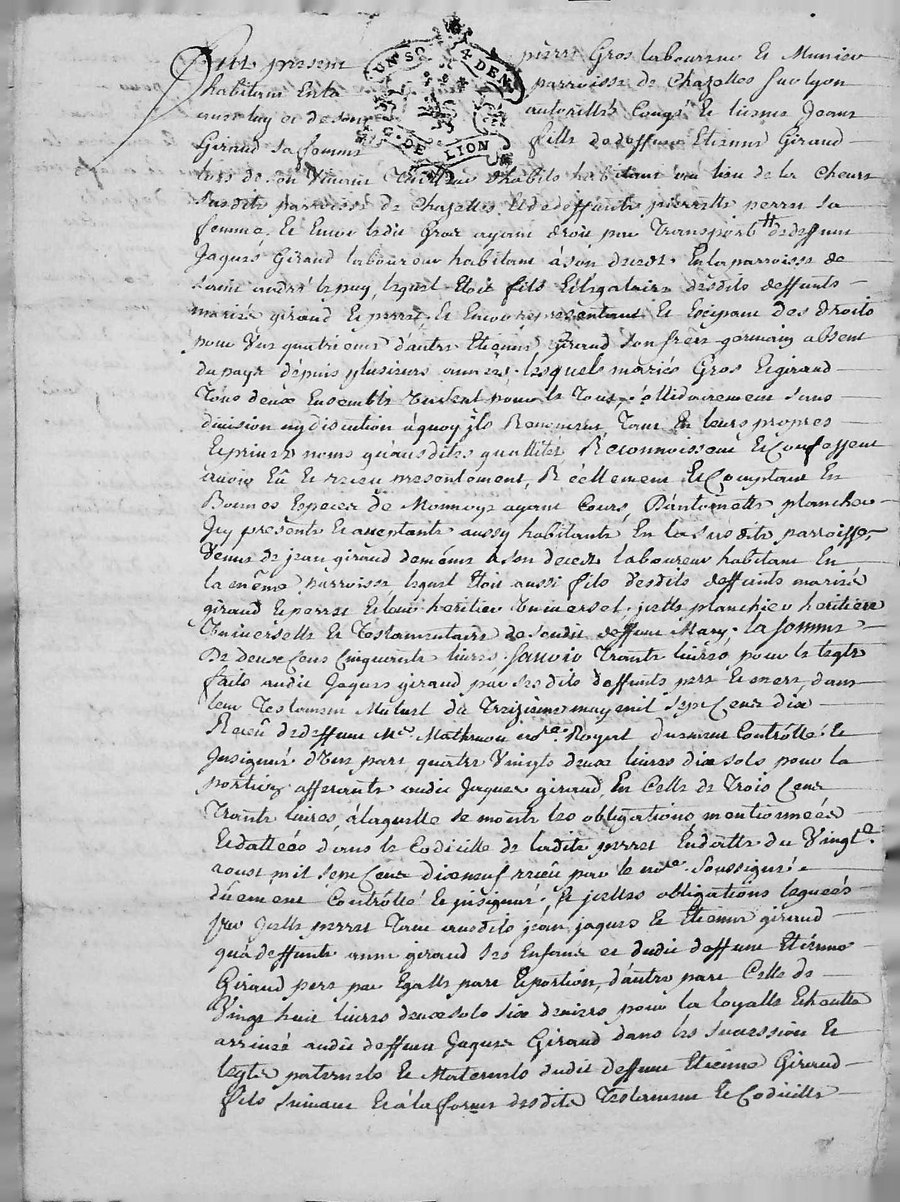 Fut present pierre Gros laboureur de Meurieu
habitant En la parroisse de Chazelles sur lyon
UN SO 4 DEN
G. DE LION
autorillés Congé et licence Jeanne
Giraud sa femme fille de deffunt Etienne Giraud
habitant au lieu de la Cheurs
susdite parroisse de Chazelles, Et de deffunte pierrette perret sa
femme, Et Encor ledit Gros ayant droit par Transport de deffunt
Jaques Giraud laboureur habitant a son deceds En la parroisse de
saint andré le puy, lequel Etoit fils Et legataire desdits deffunts
mariés giraud Et perret, Et Encor representant Et Exerçant des Droits
pour Une quatrieme d'autre Etienne Giraud son frere germain absent
du pays depuis plusieurs années, lesquels mariés Gros Et giraud
Tous deux Ensemble Et l'un pour le Tout solidairement sans
division ny discution a quoy ils Renoncent Tant En leurs propres
Et privés noms qu'ausdites qualittés, Reconnoissent Et Confessent
avoir Eû Et receu presentement, Réellement Et Comptant En
Bonnes Especes de Monnoye ayant Cours, D'antoinette planchier
Icy presente Et acceptante aussy habitante En la susdite parroisse,
Veuve de jean giraud demême a son deceds laboureur habitant En
la même parroisse lequel Etoit aussi fils desdits deffunts mariés
giraud Et perret Et leur heritier Universel, jcelle planchier heritiere
Universelle Et Testamentaire de sondit deffunt Mary, la somme
De deux Cens Cinquante livres, sçavoir Trante livres pour le legat
fait audit Jaques giraud par sesdits deffunts pere Et mere, dans
leur Testament Mutuel du Treizieme may mil sept Cens dix
Receû de deffunt Me. Mathevon nore. Royal duement Controllé Et
Insignué, D'Une part quatre Vingts deux livres dix sols pour la
portion afferante audit Jaques giraud, En Celle de Trois Cens
Trante livres, a laquelle se monte les obligations mentionnées
Et dattées dans le Codicille de ladite perret En datte du Vingt
aoust mil sept Cens dix neuf receu par le nore. Soussigné
dûement Controllé Et jnsignué, Et jcelles obligations leguées
par jcelle perret Tant ausdits jean, jaques Et Etienne giraud
qu'a deffunte anne giraud ses Enfants et dudit deffunt Etienne
Giraud pere par Egalle part Et portion, d'autre part Celle de
Vingt huit livres deux sols six deniers pour la loyalle Echeutte
arrivée audit deffunt Jaques Giraud dans les sucession Et
legats paternels Et Maternels dudit deffunt Etienne Giraud
fils suivant Et a la forme desdits Testament Et Codicille